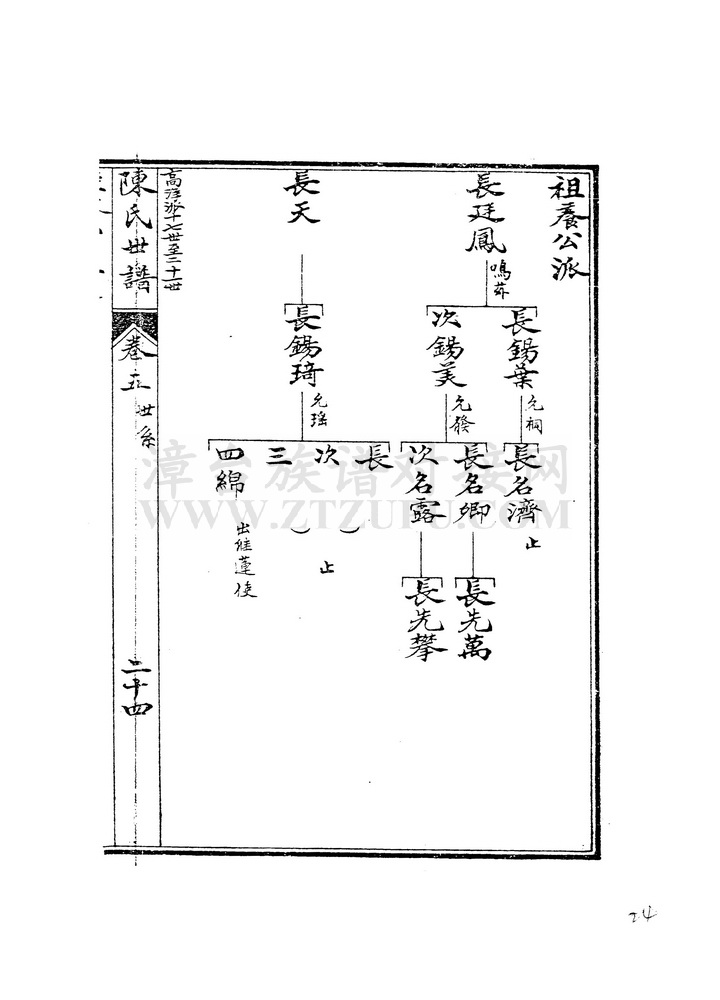 祖養公派
長廷鳳
鳴
長錫葉
允祠
長名濟
止
次錫美
允發
長名卿
長先萬
次名露
長先攀
長天
長錫琦
允瑶
長
次
三
止
四綿
出繼蓮使
派十七世至二十一世
陳氏世譜
卷五
世系
二十四
漳台族谱对接网
WWW.ZTZUPU.COM
24